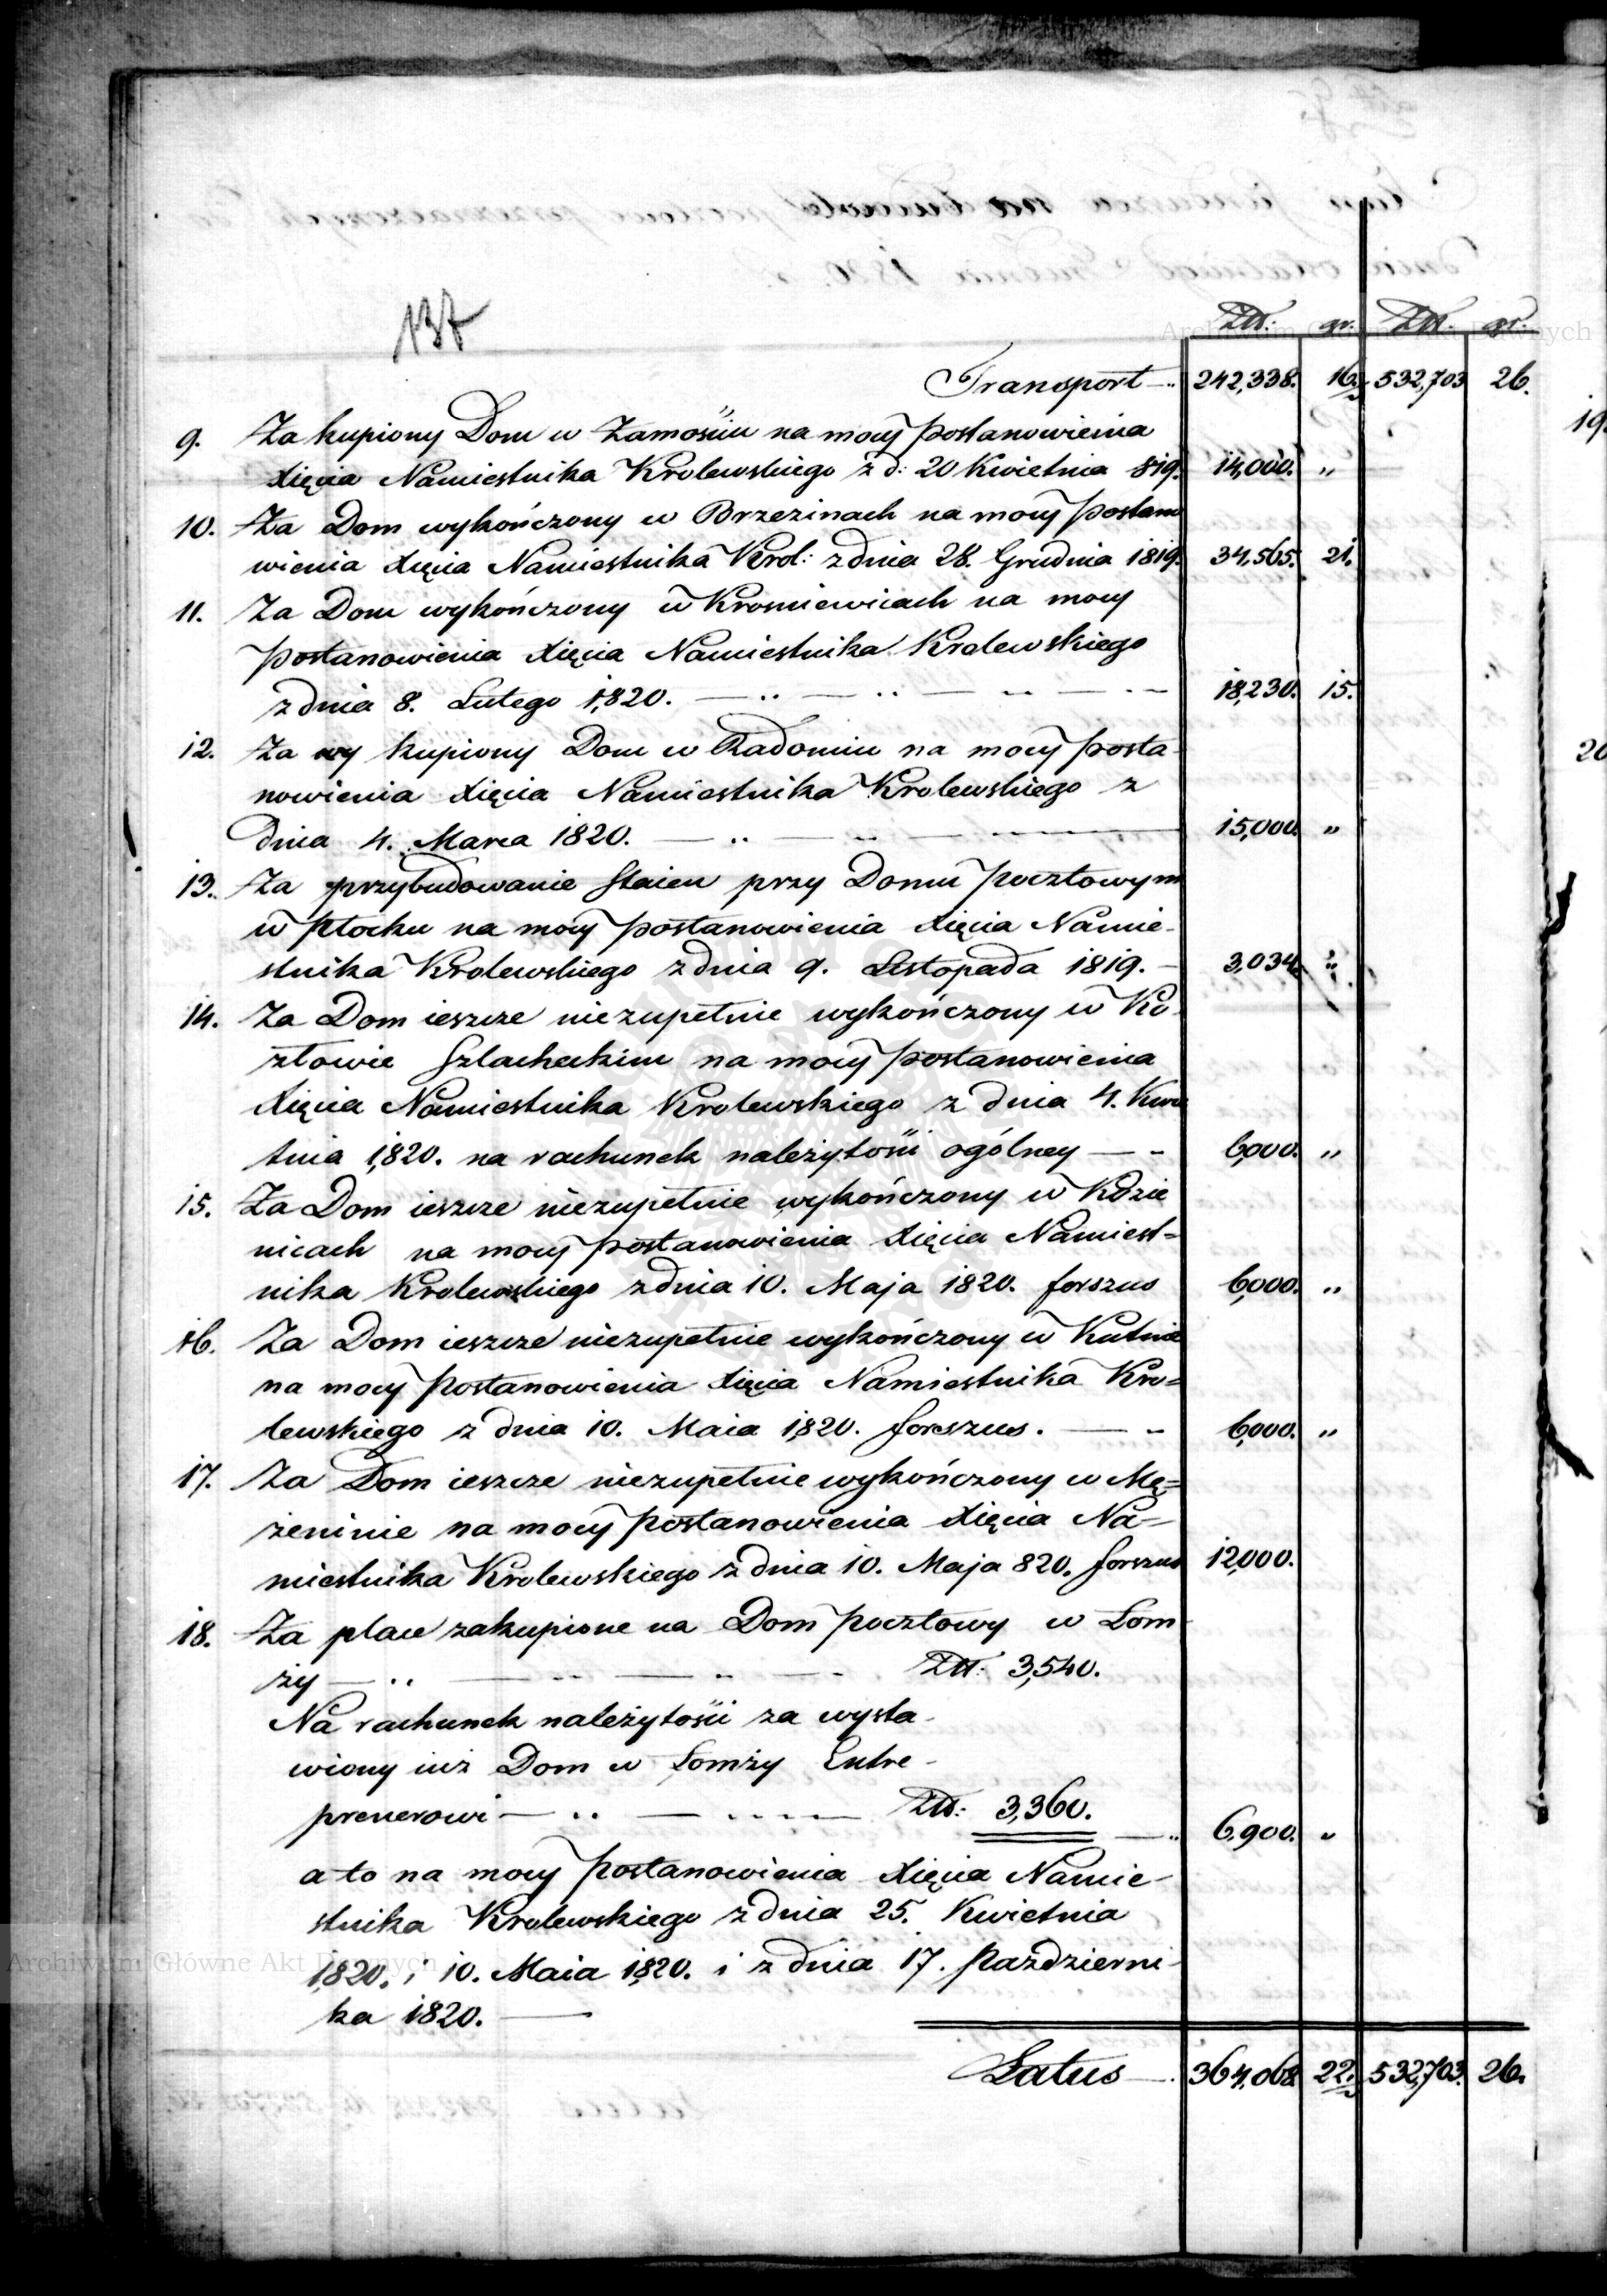 137
Złł: gr. Złł. gr.
Transport 242,338. 16. 532,703 26.
9. Za kupiony Dom w Zamościu na mocy postanowienia
Xięcia Namiestnika Krolewskiego z d: 20 Kwietnia 819. 14,000. „
10. Za Dom wykończony w Brzezinach na mocy postano
wienia Xięcia Namiestnika Krol: z dnia 28. Grudnia 1819. 34,565. 21.
11. Za Dom wykończony w Krosniewicach na mocy
postanowienia Xięcia Namiestnika Krolewskiego
z dnia 8. Lutego 1,820. 18,230. 15.
12. Za wy kupiony Dom w Radomiu na mocy posta
nowienia Xięcia Namiestnika Krolewskiego z
dnia 4. Marca 1820. 15,000. „
13. Za przybudowanie Staien przy Domu pocztowym
w Płocku na mocy postanowienia Xięcia Namie-
stnika Krolewskiego z dnia 9. Listopada 1819. 3,034. „
14. Za Dom ieszcze niezupełnie wykończony w Ko
złowie Szlacheckim na mocy postanowienia
Xięcia Namiestnika Krolewskiego z dnia 4. Kwie
tnia 1,820. na rachunek należytości ogólney 6,000. „
15. Za Dom ieszcze niezupełnie wykończony w Kozie
nicach na mocy postanowienia Xięcia Namiest=
nika Krolewskiego z dnia 10. Maja 1820. forszus 6,000. „
16. Za Dom ieszcze niezupełnie wykończony w Kutnie
na mocy postanowienia Xięcia Namiestnika Kro=
lewskiego z dnia 10. Maia 1,820. forszus. 6,000. „
17. Za Dom ieszcze niezupełnie wykończony w Mę=
żeninie na mocy postanowienia Xięcia Na=
miestnika Krolewskiego z dnia 10. Maja 820. forszus 12,000.
18. Za place zakupione na Dom pocztowy w Łom
ży Złł: 3,540.
Na rachunek należytości za wysta-
wiony iuż Dom w Łomży Entre-
prenerowi Złł: 3,360. 6,900. „
a to na mocy postanowienia Xięcia Namie-
stnika Krolewskiego z dnia 25. Kwietnia
1,820. i 10. Maia 1,820. i z dnia 17. Październi-
ka 1820.
Latus 364,068 22. 532,703. 26.
19.
20
Archiwum Główne Akt Dawnych
Archiwum Główne Akt Dawnych